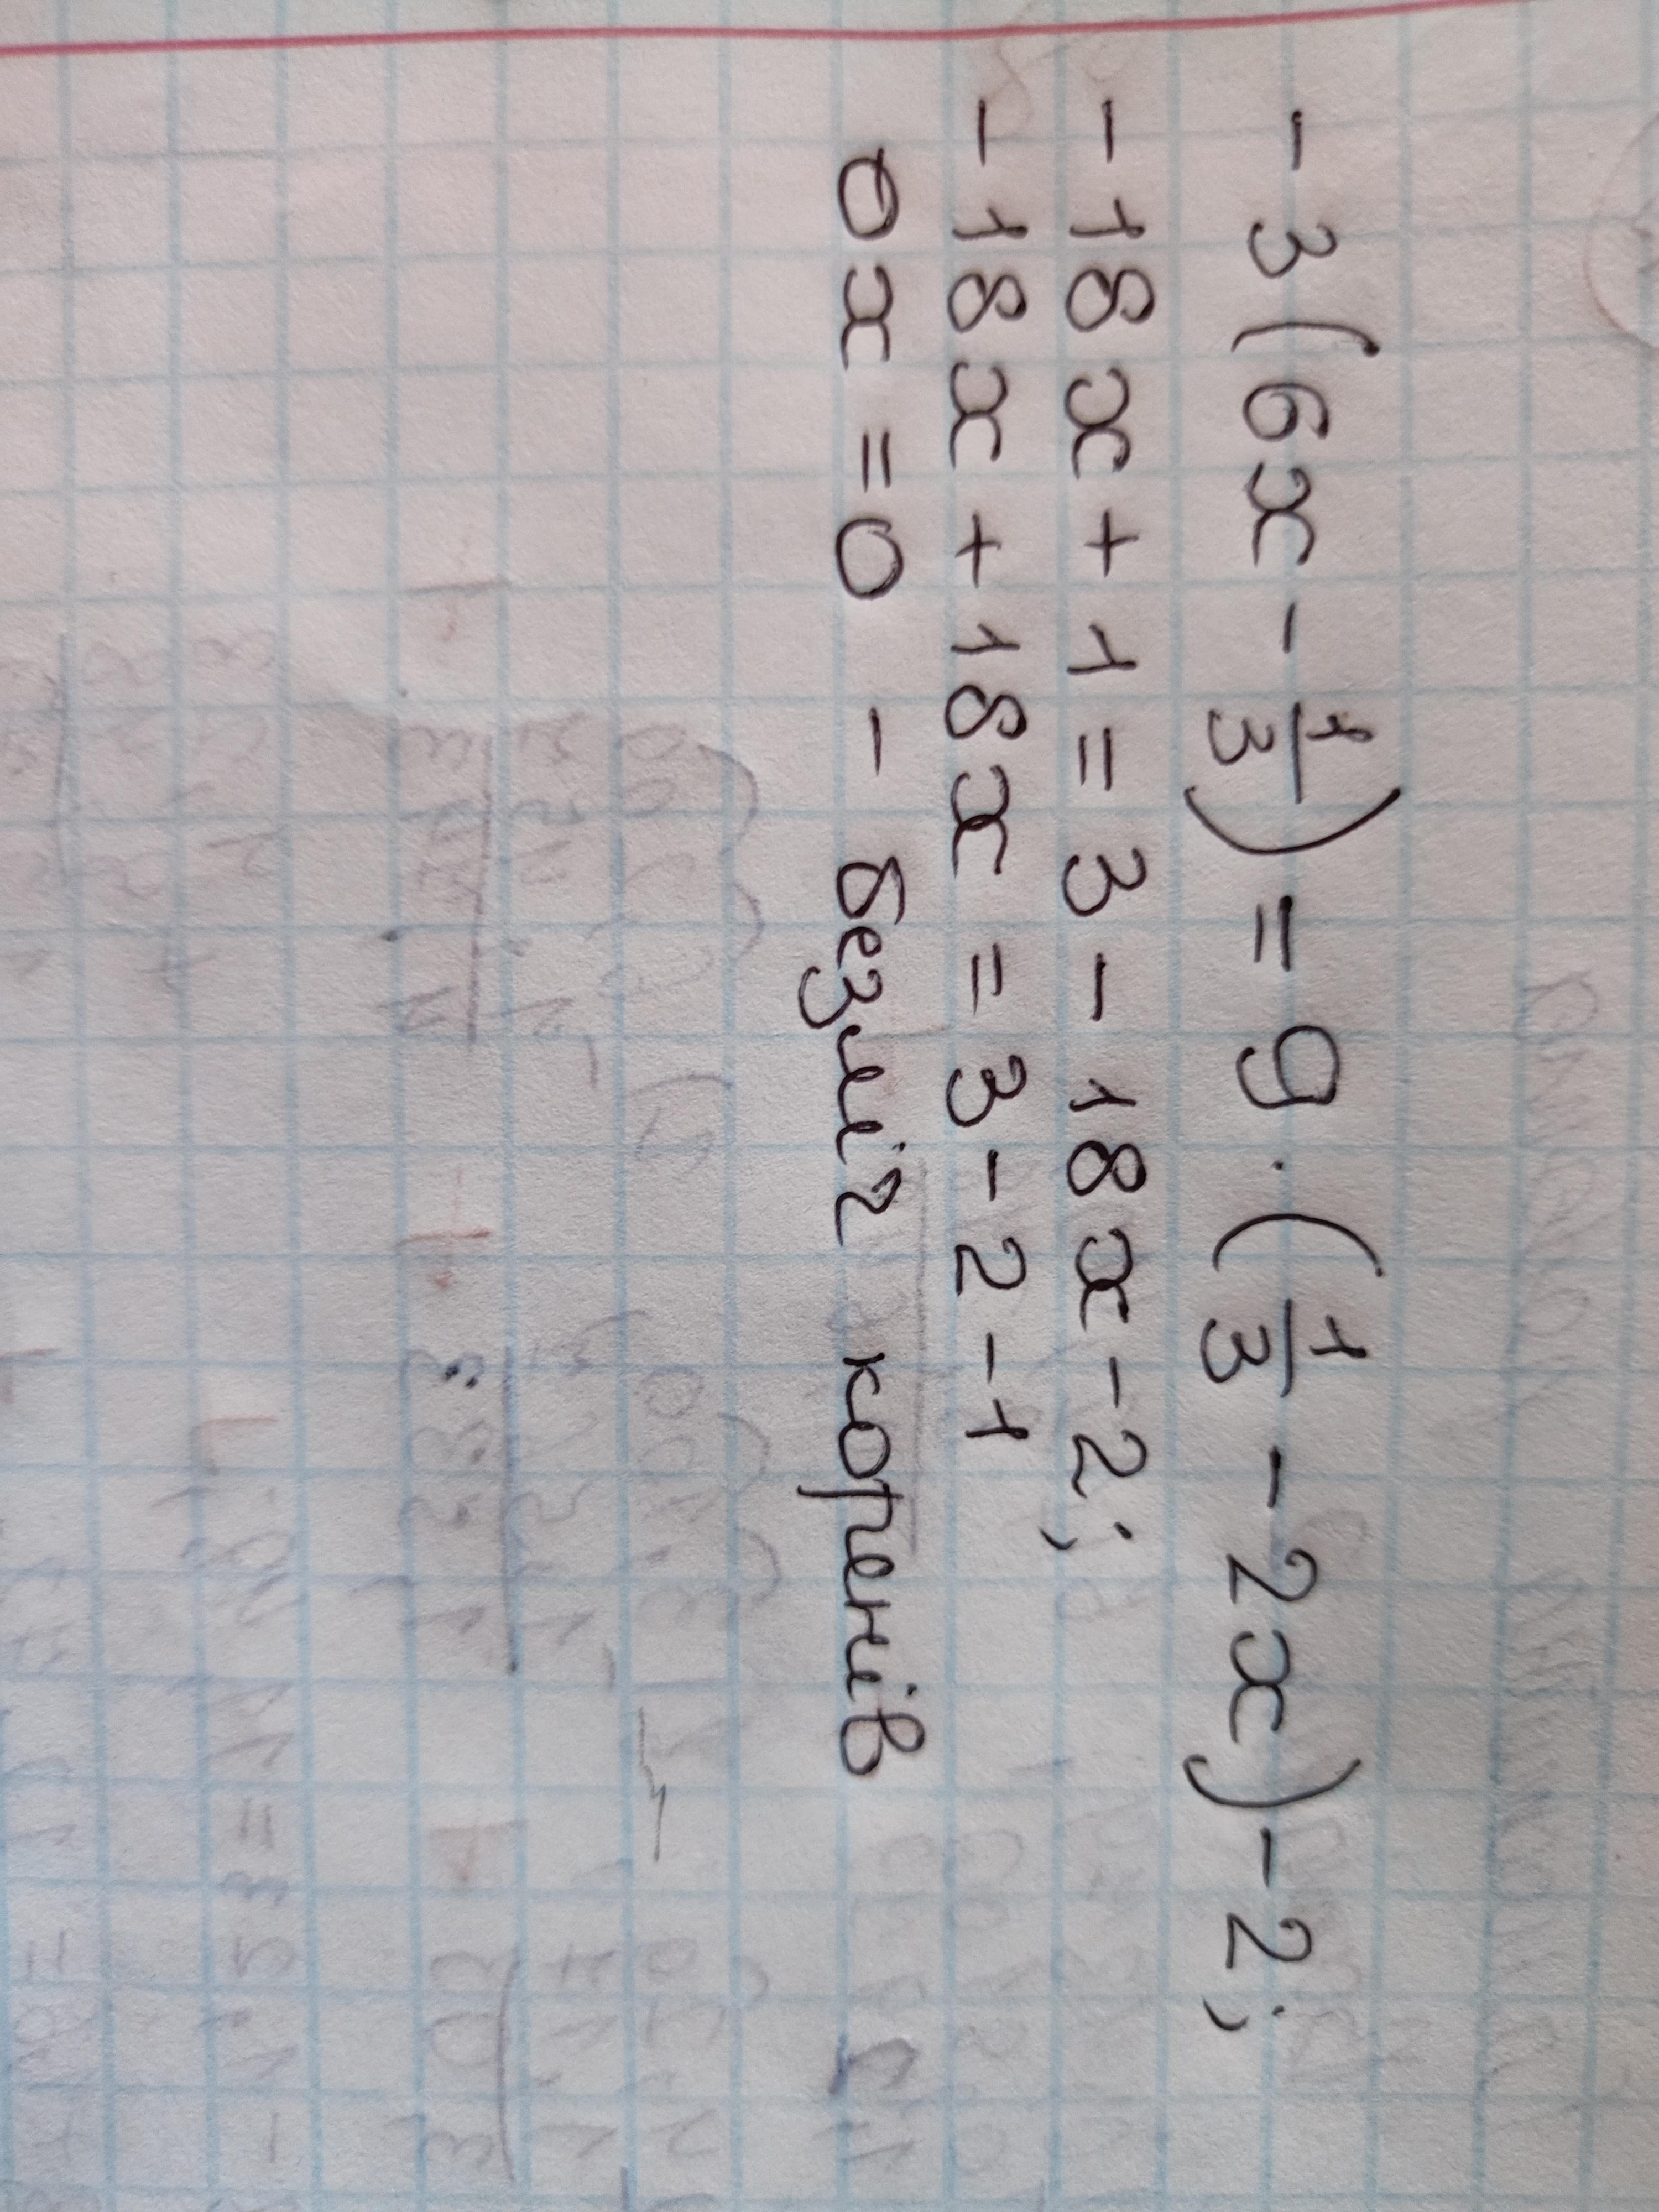 - 3(6x - 1/3) = 9 · (1/3 - 2x) - 2;
- 18x + 1 = 3 - 18x - 2;
- 18x + 18x = 3 - 2 - 1
0x = 0 - безліч коренів